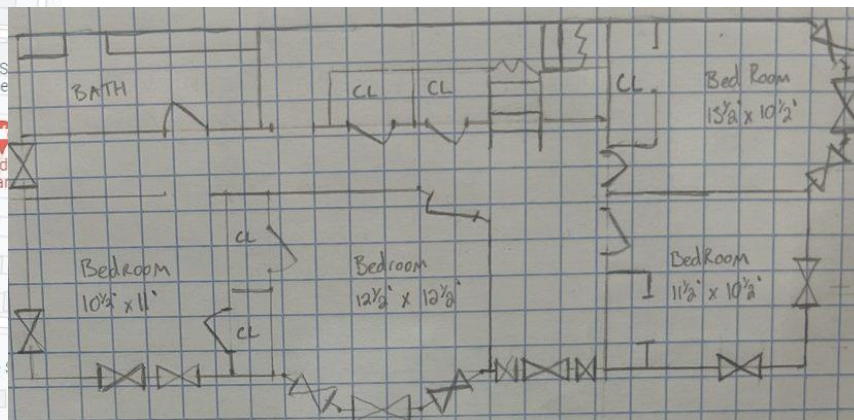 BATH
CL
CL
CL
Bed Room
13½' x 10½'
CL
Bedroom
10½' x 11'
CL
Bedroom
12½' x 12½'
BedRoom
11½' x 10½'